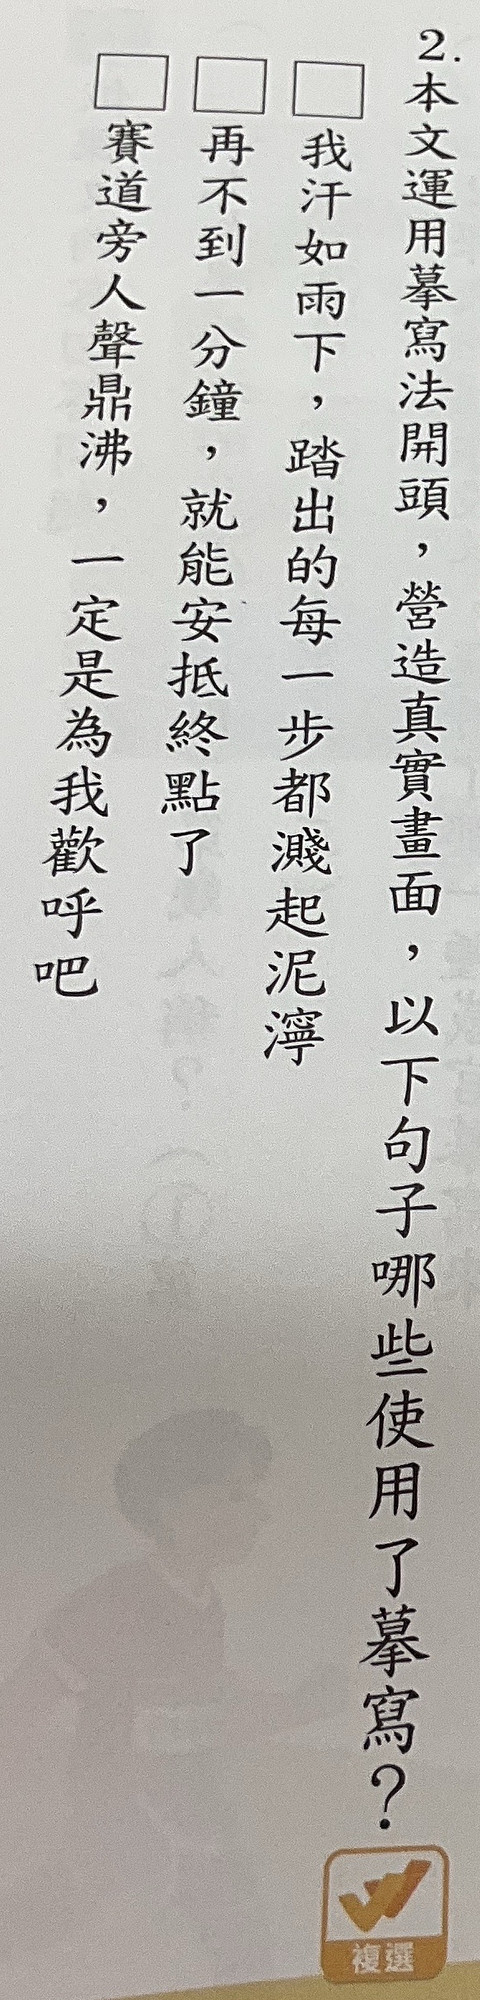 2.本文運用摹寫法開頭，營造真實畫面，以下句子哪些使用了摹寫？
複選
□我汗如雨下，踏出的每一步都濺起泥濘
□再不到一分鐘，就能安抵終點了
□賽道旁人聲鼎沸，一定是為我歡呼吧